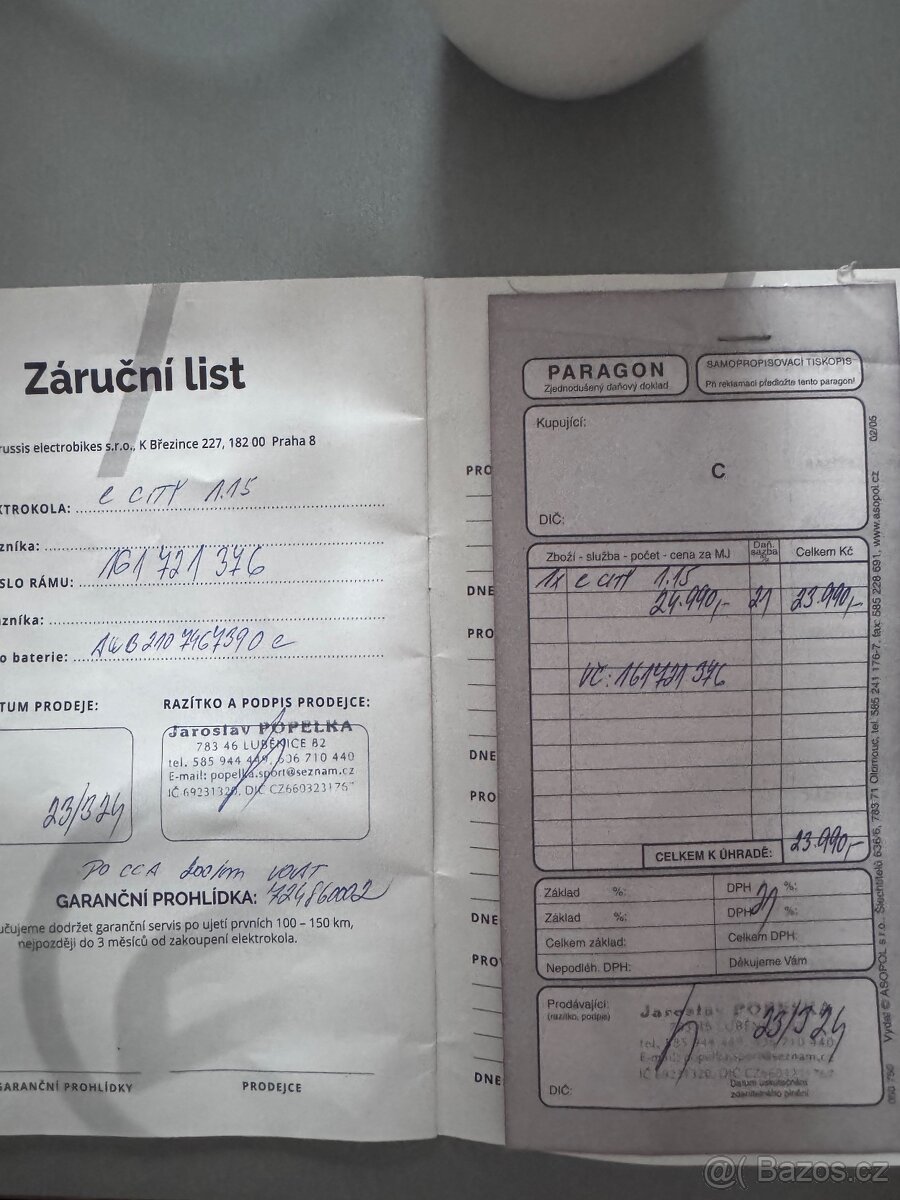 Záruční list
russis electrobikes s.r.o., K Březince 227, 182 00 Praha 8
KTROKOLA: e CITY 1.15
zníka:
SLO RÁMU: 161 721 376
azníka:
o baterie: AWB2107467390 c
TUM PRODEJE:
23/3 24
RAZÍTKO A PODPIS PRODEJCE:
Jaroslav POPELKA
783 46 LUBĚNICE 82
tel. 585 944 449, 606 710 440
E-mail: popelka.sport@seznam.cz
IČ 69231320, DIČ CZ6603231767
PO CCA 200 km VOLAT
GARANČNÍ PROHLÍDKA: 724860002
učujeme dodržet garanční servis po ujetí prvních 100 – 150 km,
nejpozději do 3 měsíců od zakoupení elektrokola.
GARANČNÍ PROHLÍDKY
PRODEJCE
PRO
DNE
PRO
DNE
PRO
DNE
PRO
DNE
PARAGON
Zjednodušený daňový doklad
SAMOPROPISOVACÍ TISKOPIS
Při reklamaci předložte tento paragon!
Kupující:
C
DIČ:
Zboží - služba - počet - cena za MJ
Daň. sazba %
Celkem Kč
1x e CITY 1.15
24.990,- 21 23.990,-
VČ: 161721376
CELKEM K ÚHRADĚ: 23.990,-
Základ %: DPH 21 %:
Základ %: DPH %:
Celkem základ: Celkem DPH:
Nepodléh. DPH: Děkujeme Vám
Prodávající:
(razítko, podpis)
Jaroslav POPELKA
23/3 24
DIČ:
Datum uskutečnění
zdanitelného plnění
Vydal © ASOPOL s.r.o. Šlechtitelů 636/6, 783 71 Olomouc, tel. 585 241 176-7, fax: 585 228 691, www.asopol.cz 02/05
050 750
@( Bazos.cz